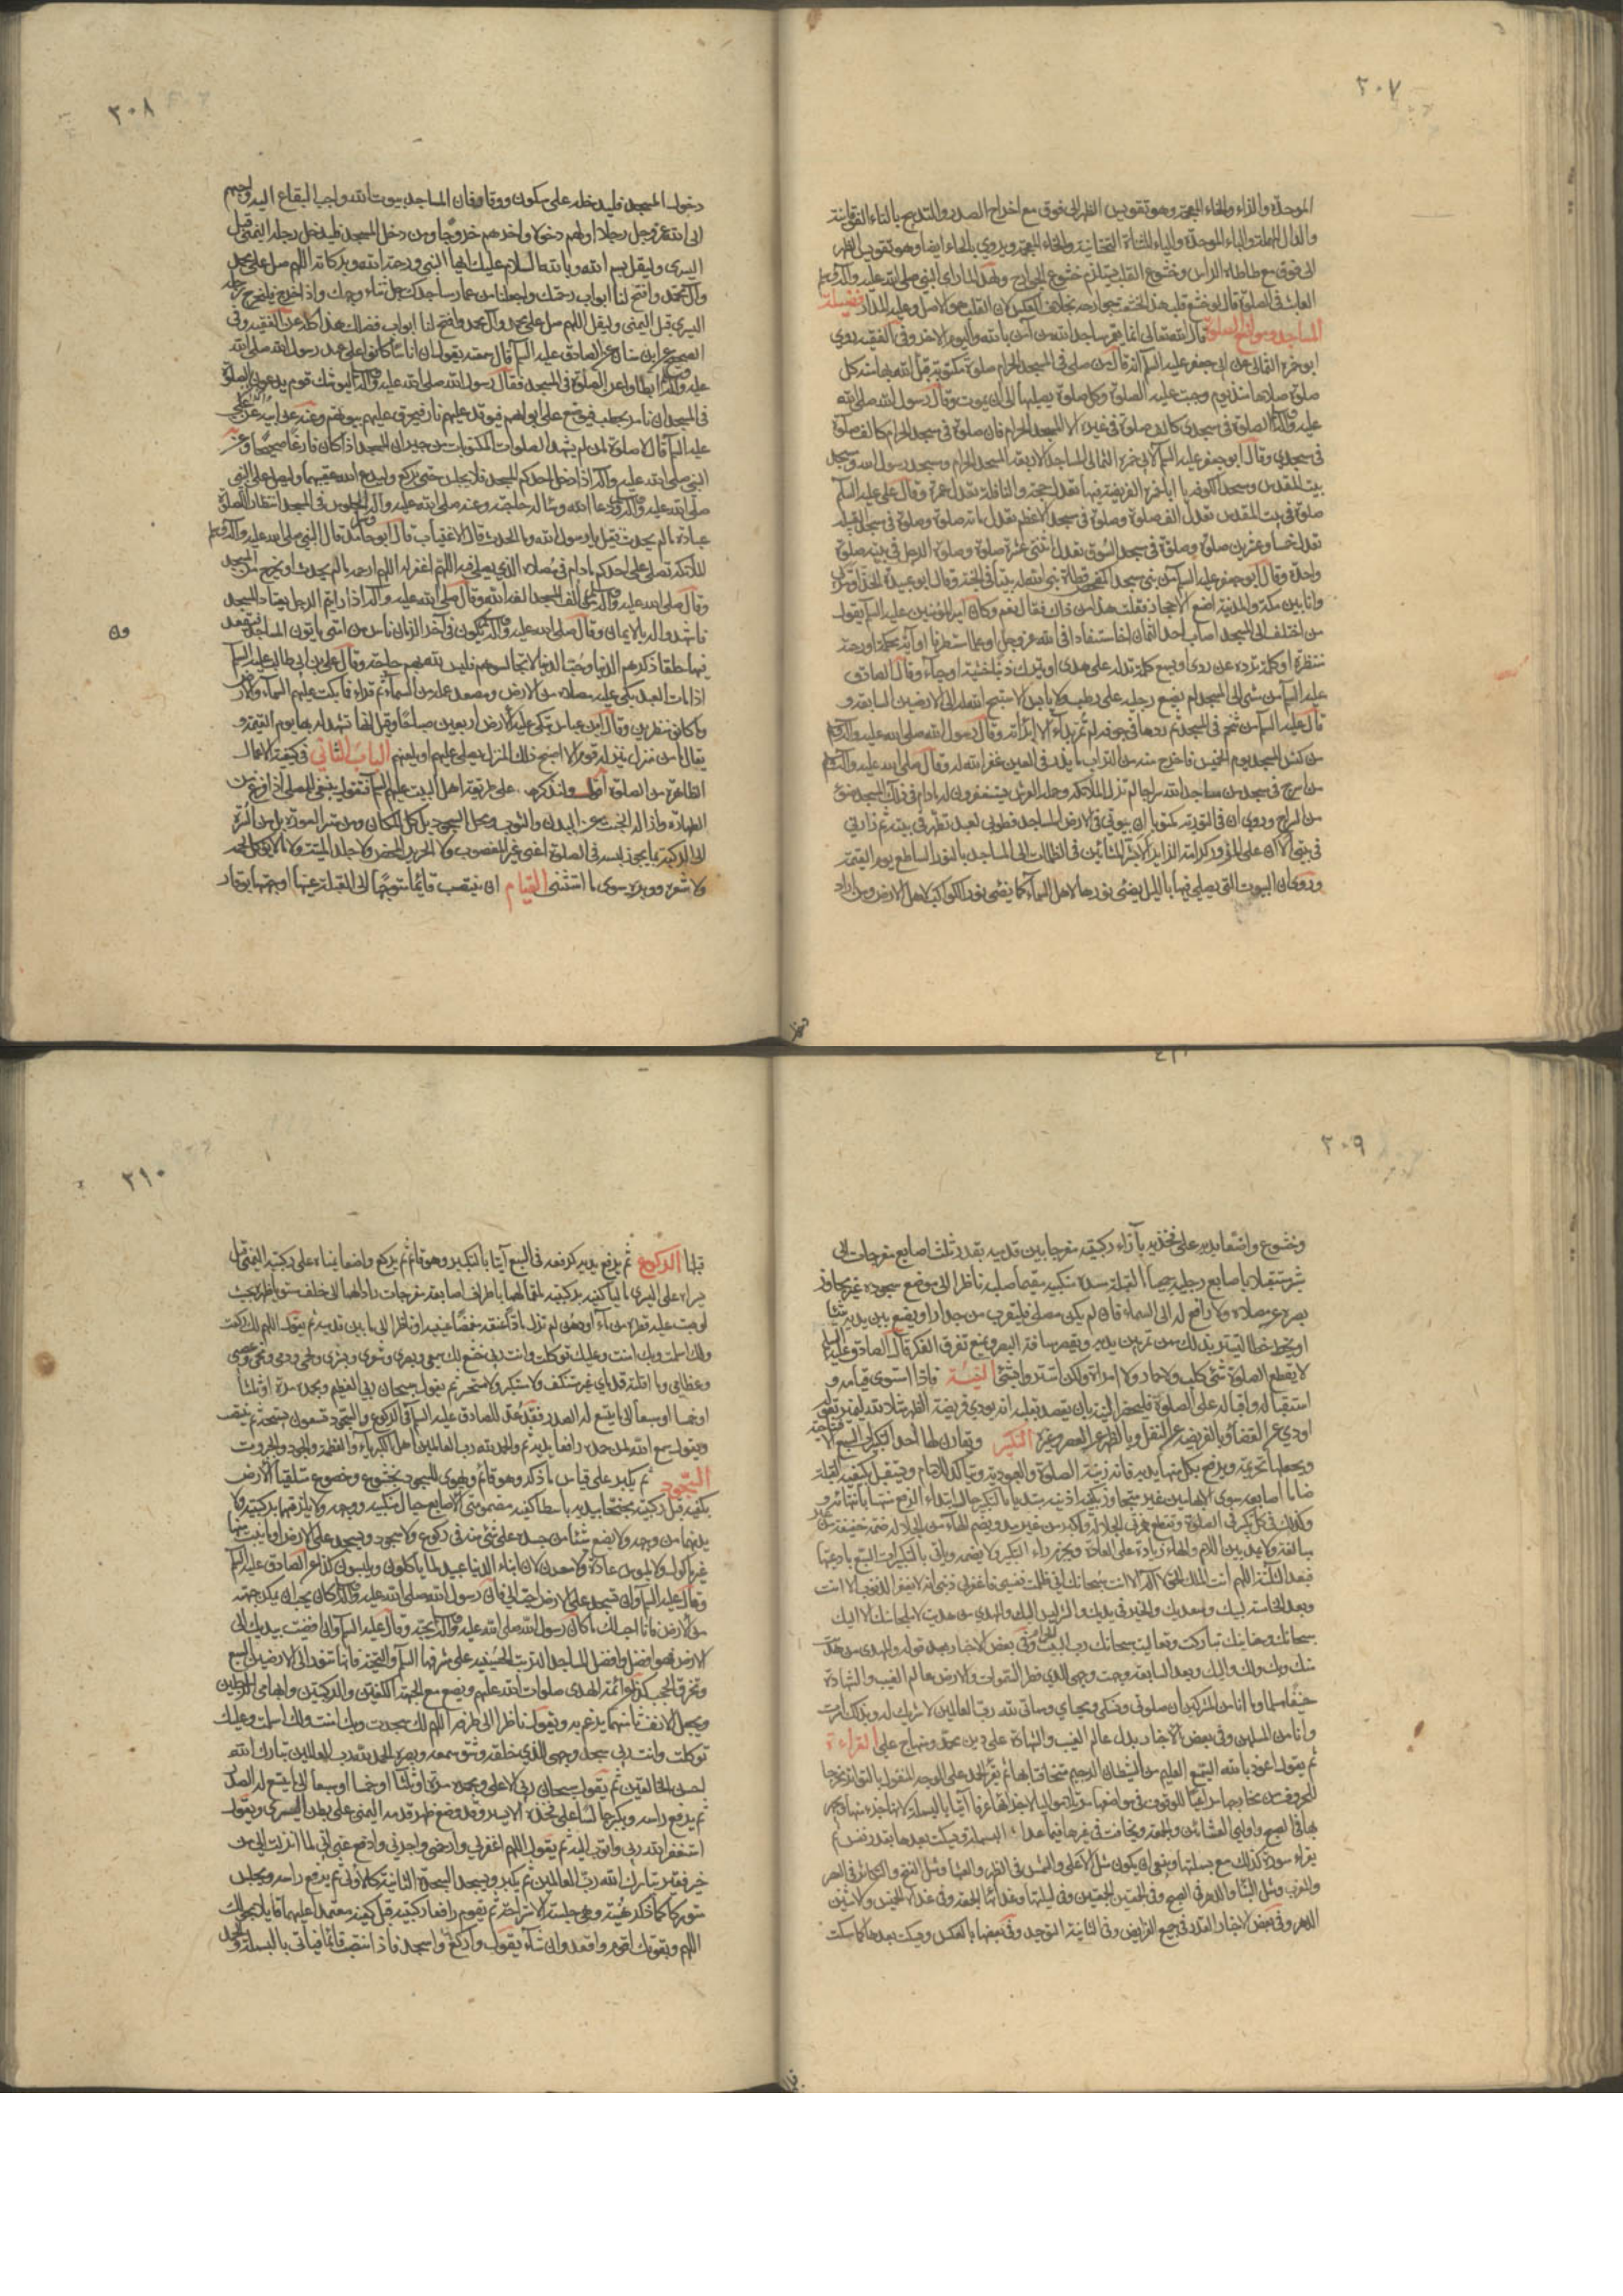 ٢٠٧
الموحدة والزاء والخاء المعجمة وهو تقويس الظهر الى فوق مع اخراج الصدر والتدبيح بالتاء الفوقانية
والدال المهملة والباء الموحدة والياء المثناة التحتانية والخاء المعجمة ويروى بالحاء ايضا وهو تقويس الظهر
الى فوق مع طاطاه الراس وخشوع القلب يستلزم خشوع الجوارح ولهذا لما راى النبي صلى الله عليه وآله
العابث في الصلوة قال لو خشع قلب هذا لخشعت جوارحه بخلاف العكس لان القلب هو الاصل وعليه المدار فضيلة
المساجد ومواضع الصلوة قال الله تعالى انما يعمر مساجد الله من آمن بالله واليوم الاخر وفي الفقيه روى
ابو حمزة الثمالي عن ابي جعفر عليه السلم انه قال من صلى في المسجد الحرام صلوة مكتوبة قبل الله بها منه كل
صلوة صلاها منذ يوم وجبت عليه الصلوة وكل صلوة يصليها الى ان يموت وقال رسول الله صلى الله
عليه وآله الصلوة في مسجدي كالف صلوة في غيره الا المسجد الحرام فان صلوة في مسجد الحرام كالف صلوة
في مسجدي وقال ابو جعفر عليه السلم لابي حمزة الثمالي المساجد الاربعة المسجد الحرام ومسجد رسول الله ومسجد
بيت المقدس ومسجد الكوفة يا ابا حمزة الفريضة فيها تعدل حجة والنافلة تعدل عمرة وقال علي عليه السلم
صلوة في بيت المقدس تعدل الف صلوة وصلوة في مسجد الاعظم تعدل مائة صلوة وصلوة في مسجد القبيلة
تعدل خمسا وعشرين صلوة وصلوة في مسجد السوق تعدل اثنتي عشرة صلوة وصلوة الرجل في بيته صلوة
واحدة وقال ابو جعفر عليه السلم من بنى مسجدا كمفحص قطاة بنى الله له بيتا في الجنة وقال ابو عبيدة الحذاء ومر بي
وانا بين مكة والمدينة اضع الاحجار فقلت هذا من ذاك فقال نعم وكان امير المؤمنين عليه السلم يقول
من اختلف الى المسجد اصاب احد الثمان اخا مستفادا في الله عز وجل او علما مستطرفا او آية محكمة او رحمة
منتظرة او كلمة ترده عن ردى او يسمع كلمة تدله على هدى او يترك ذنبا خشية او حياء وقال الصادق
عليه السلم من مشى الى المسجد لم يضع رجله على رطب ولا يابس الا سبح الله له الى الارضين السابعة و
قال عليه السلم من تنخم في المسجد ثم ردها في جوفه لم تمر بداء الا ابرأته وقال رسول الله صلى الله عليه وآله
من كنس المسجد يوم الخميس فاخرج منه من التراب ما يذر في العين غفر الله له وقال صلى الله عليه وآله
من اسرج في مسجد من مساجد الله سراجا لم تزل الملائكة وحملة العرش يستغفرون له ما دام في ذلك المسجد ضوء
من السراج وروى ان في التورية مكتوبا ان بيوتي في الارض المساجد فطوبى لعبد تطهر في بيته ثم زارني
في بيتي الا ان على المزور كرامة الزاير الا بشر المشائين في الظلمات الى المساجد بالنور الساطع يوم القيمة
وروى ان البيوت التي يصلى فيها بالليل يضئ نورها لاهل السماء كما يضئ نور الكواكب لاهل الارض ومن اراد
٢٠٨
دخول المسجد فليدخله على سكون ووقار فان المساجد بيوت الله واحب البقاع اليه واحبهم
الى الله عز وجل رجلا اولهم دخولا واخرهم خروجا ومن دخل المسجد فليدخل رجله اليمنى قبل
اليسرى وليقل بسم الله وبالله السلام عليك ايها النبي ورحمة الله وبركاته اللهم صل على محمد
وآل محمد وافتح لنا ابواب رحمتك واجعلنا من عمار مساجدك جل ثناء وجهك واذا خرج فليخرج رجله
اليسرى قبل اليمنى وليقل اللهم صل على محمد وآل محمد وافتح لنا ابواب فضلك هذا كله عن الفقيه وفي
الصحيح عن ابن سنان عن الصادق عليه السلم قال سمعته يقول ان اناسا كانوا على عهد رسول الله صلى الله
عليه وآله ابطاوا عن الصلوة في المسجد فقال رسول الله صلى الله عليه وآله ليوشك قوم يدعون الصلوة
في المسجد ان نامر بحطب فيوضع على ابوابهم فيوقد عليهم نار فيحرق عليهم بيوتهم وعنه عن ابيه عن علي
عليه السلم قال لا صلوة لمن لم يشهد الصلوات المكتوبات من جيران المسجد اذا كان فارغا صحيحا وعن
النبي صلى الله عليه وآله اذا دخل احدكم المسجد فلا يجلس حتى يركع وليدع الله عقيبهما وليصل على النبي
صلى الله عليه وآله ودعا الله وساله حاجته وعنه صلى الله عليه وآله الجلوس في المسجد انتظار الصلوة
عبادة ما لم يحدث قيل يا رسول الله وما الحدث قال الاغتياب قال ابو حامد قال النبي صلى الله عليه وآله
الملائكة تصلى على احدكم ما دام في مصلاه الذي يصلى فيه اللهم اغفر له اللهم ارحمه ما لم يحدث او يخرج من المسجد
وقال صلى الله عليه وآله من الف المسجد الفه الله وقال صلى الله عليه وآله اذا رايتم الرجل يعتاد المسجد
فاشهدوا له بالايمان وقال صلى الله عليه وآله يكون في آخر الزمان ناس من امتي ياتون المساجد فيقعدون
فيها حلقا ذكرهم الدنيا وحب الدنيا لا تجالسوهم فليس لله بهم حاجة وقال علي بن ابي طالب عليه السلم
اذا مات العبد يبكى عليه مصلاه من الارض ومصعد عمله من السماء ثم قراء فما بكت عليهم السماء والارض
وما كانوا منظرين وقال ابن عباس تبكى عليه الارض اربعين صباحا وقيل انها تشهد له بها يوم القيمة و
يقال ما من منزل ينزله قوم الا اصبح ذلك المنزل يصلى عليهم او يلعنهم الباب الثاني في كيفية الاعمال
الظاهرة من الصلوة اقول ولنذكرها على طريقة اهل البيت عليهم السلم فنقول ينبغي للمصلي اذا فرغ من
الطهارة وازالة الخبث عن البدن والثوب ومحل السجود بل كل المكان ومن ستر العورة بل من السرة
الى الركبة بما يجوز لبسه في الصلوة اعنى غير المغصوب ولا الحرير المحض ولا جلد الميتة ولا ما لا يؤكل لحمه
ولا شعره ووبره سوى ما استثنى القيام ان ينتصب قائما متوجها الى القبلة عينها او جهتها بوقار
٢٠٩
وخشوع واضعا يديه على فخذيه بازاء ركبتيه مفرجا بين قدميه بقدر ثلث اصابع مفرجات الى
شبر مستقبلا باصابع رجليه جميعا القبلة سدل منكبيه مقيما صلبه ناظرا الى موضع سجوده غير مجاوز
بصره عن مصلاه ولا رافع له الى السماء فان لم يكن مصلى فليقرب من جدار او يضع بين يديه شيئا
او يخط خطا ليستتر بذلك ممن يمر بين يديه ويقصر مسافة البصر ويمنع تفرق الفكر قال الصادق عليه السلم
لا يقطع الصلوة شئ كلب ولا حمار ولا امراة ولكن استتروا بشئ النية فاذا استوى قيامه و
استقباله واقباله على الصلوة فليحضر النية بان يقصد بقلبه انه يودي فريضة الظهر مثلا
اودى عن القضاء وبالفريضة عن النفل وبالظهر عن العصر وغيره التكبير ويقارن لها احد التكبيرات السبع الافتتاحية
ويجعلها تحريمة ويرفع بكل منها يديه فانه زينة الصلوة والعبودية ويتاكد للامام ويستقبل بكفيه القبلة
ضاما اصابعه سوى الابهامين غير متجاوز بكفيه اذنيه مبتديا بالتكبير حال ابتداء الرفع منتهيا بانتهائه و
وكذلك في كل تكبير في الصلوة وتقطع همزتي الجلالة واكبر من غير مد ويضم الهاء من الجلالة ضمة خفيفة من غير
مبالغة ولا يمد بين اللام والهاء زيادة على العادة ويجزم راء التكبير ولا يضمه وياتي بالتكبيرات السبع بادعيتها
فبعد الثالثة اللهم انت الملك الحق لا اله الا انت سبحانك اني ظلمت نفسي فاغفر لي ذنبي انه لا يغفر الذنوب الا انت
وبعد الخامسة لبيك وسعديك والخير في يديك والشر ليس اليك والمهدي من هديت لا ملجا منك الا اليك
سبحانك وحنانيك تباركت وتعاليت سبحانك رب البيت الحرام وفي بعض الاخبار بعد قوله والمهدي من هديت
منك وبك ولك واليك وبعد السابعة وجهت وجهي للذي فطر السموات والارض عالم الغيب والشهادة
حنيفا مسلما وما انا من المشركين ان صلوتي ونسكي ومحياي ومماتي لله رب العالمين لا شريك له وبذلك امرت
وانا من المسلمين وفي بعض الاخبار بدل عالم الغيب والشهادة على دين محمد ومنهاج علي القراءة
ثم يقول اعوذ بالله السميع العليم من الشيطان الرجيم ثم يقرء الحمد على الوجه المنقول بالتواتر مخرجا
للحروف من مخارجها مراعيا للوقوف في مواضعها آتيا بالبسملة لانها جزء منها ويجهر
بها في الصبح واولى العشائين والجمعة ويخافت في غيرها فيما عدا البسملة ويسكت بعدها بقدر نفس ثم
يقراء سورة كذلك مع بسملتها وينبغي ان يكون مثل الاعلى والشمس في الظهر والعشا ومثل الفتح والتكاثر في العصر
والمغرب ومثل النبأ والدهر في الصبح وفي الجمعة الجمعتين وفي ليلتها وغداتها الجمعة وفي غداة الخميس والاثنين
الدهر وفي بعض الاخبار القدر في جميع الفرايض وفي الثانية التوحيد وفي بعضها بالعكس ويسكت بعدها كما سكت
٢١٠
قبلها الركوع ثم يرفع يديه كرفعه في السبع آتيا بالتكبير وهو قائم ثم يركع واضعا يمناه على ركبته اليمنى قبل
يسراه على اليسرى ماليا كفيه بركبتيه ملقما لهما باطراف اصابعه مفرجات رادا لهما الى خلف مسويا ظهره بحيث
لو صبت عليه قطرة من ماء او دهن لم تزل مادا عنقه مغمضا عينيه او ناظرا الى ما بين قدميه ثم يقول اللهم لك ركعت
ولك اسلمت وبك امنت وعليك توكلت وانت ربي خشع لك سمعي وبصري وشعري وبشري ولحمي ودمي ومخي وعصبي
وعظامي وما اقلته قدماي غير مستنكف ولا مستكبر ولا مستحسر ثم يقول سبحان ربي العظيم وبحمده مرة او ثلثا
او خمسا او سبعا الى ما يتسع له الصدر فقد عد للصادق عليه السلم في الركوع والسجود ستون تسبيحة ثم ينتصب
ويقول سمع الله لمن حمده رافعا يديه ثم والحمد لله رب العالمين اهل الكبرياء والعظمة والجود والجبروت
السجود ثم يكبر على قياس ما ذكر وهو قائم ويهوى للسجود بخشوع وخضوع متلقيا الارض
بكفيه قبل ركبتيه مجنحا بيديه باسطا كفيه مضمومتي الاصابع حيال منكبيه ووجهه ولا يلزقهما بركبتيه ولا
يدنيهما من وجهه ولا يضع شيئا من جسده على شئ منه في ركوع ولا سجود ويسجد على الارض او ما ينبت منها
غير ماكول ولا ملبوس عادة ولا معدن لان ابناء الدنيا عبيد لما ياكلون ويلبسون كذا عن الصادق عليه السلم
وقال عليه السلم وان تسجد على الارض احب الي فان رسول الله صلى الله عليه وآله كان يحب ان يمكن جبهته
من الارض فانا احب لك ما كان رسول الله صلى الله عليه وآله يحبه وقال عليه السلم وان افضيت بيديك الى
الارض فهو افضل وافضل المساجد التربة الحسينية على مشرفها السلم والتحية فانها تنور الى الارضين السبع
وتخرق الحجب كذا عن ائمة الهدى صلوات الله عليهم ويضع مع الجبهة الكفين والركبتين وابهامي الرجلين
ويجعل الانف ثامنها يرغم به ويقول ناظرا الى طرفه اللهم لك سجدت وبك امنت ولك اسلمت وعليك
توكلت وانت ربي سجد وجهي للذي خلقه وشق سمعه وبصره الحمد لله رب العالمين تبارك الله
احسن الخالقين ثم يقول سبحان ربي الاعلى وبحمده مرة او ثلثا او خمسا او سبعا الى ما يتسع له الصدر
ثم يرفع راسه ويكبر جالسا على فخذه الايسر وقد وضع ظهر قدمه اليمنى على بطن اليسرى ويقول
استغفر الله ربي واتوب اليه ثم يقول اللهم اغفر لي وارحمني واجرني وادفع عني اني لما انزلت الي من
خير فقير تبارك الله رب العالمين ثم يكبر ويسجد السجدة الثانية كالاولى ثم يرفع راسه ويجلس
متوركا كما ذكر هنيئة وهي جلسة الاستراحة ثم يقوم رافعا ركبتيه قبل كفيه معتمدا عليهما قايلا بحولك
اللهم وبقوتك اقوم واقعد وان شاء يقول واركع واسجد فاذا انتصب قائما فياتي بالبسملة والحمد